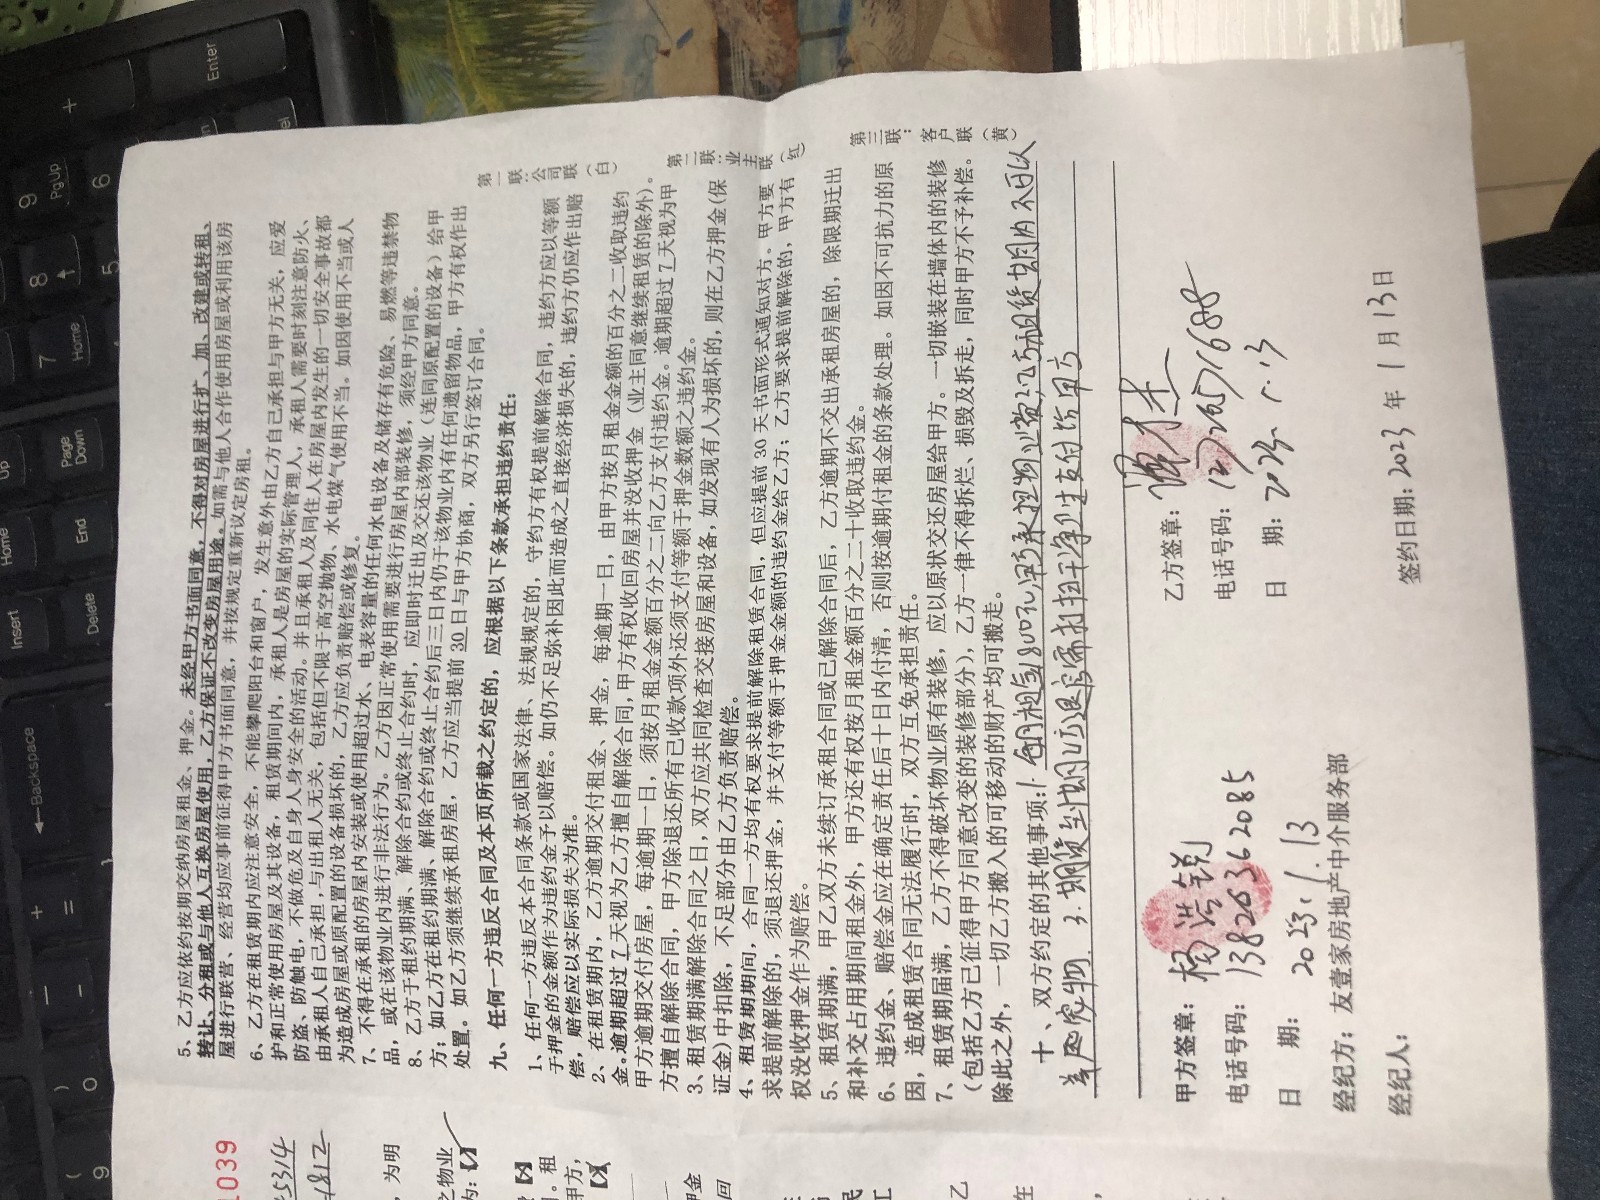 5、乙方应依约按期交纳房屋租金、押金。未经甲方书面同意，不得对房屋进行扩、加、改建或转租、
转让、分租或与他人互换房屋使用，乙方保证不改变房屋用途。如需与他人合作使用房屋或利用该房
屋进行联营、经营均应事前征得甲方书面同意，并按规定重新议定房租。
6、乙方在租赁期内应注意安全，不能攀爬阳台和窗户，发生意外由乙方自己承担与甲方无关，应爱
护和正常使用房屋及其设备，租赁期间内，承租人是房屋的实际管理人，承租人需要时刻注意防火、
防盗、防触电，不做危及自身人身安全的活动。并且承租人及同住人在房屋内发生的一切安全事故都
由承租人自己承担，与出租人无关，包括但不限于高空抛物、水电煤气使用不当。如因使用不当或人
为造成房屋或原配置的设备损坏的，乙方应负责赔偿或修复。
7、不得在承租的房屋内安装或使用超过水、电表容量的任何水电设备及储存有危险、易燃等违禁物
品，或在该物业内进行非法行为。乙方因正常使用需要进行房屋内部装修，须经甲方同意。
8、乙方于租约期满、解除合约或终止合约时，应即时迁出及交还该物业（连同原配置的设备）给甲
方；如乙方在租约期满、解除合约或终止合约后三日内仍于该物业内有任何遗留物品，甲方有权作出
处置。如乙方须继续承租房屋，乙方应当提前 30 日与甲方协商，双方另行签订合同。
九、任何一方违反合同及本页所载之约定的，应根据以下条款承担违约责任：
1、任何一方违反本合同条款或国家法律、法规规定的，守约方有权提前解除合同，违约方应以等额
于押金的金额作为违约金予以赔偿。如仍不足弥补因此而造成之直接经济损失的，违约方仍应作出赔
偿，赔偿应以实际损失为准。
2、在租赁期内，乙方逾期交付租金、押金，每逾期一日，由甲方按月租金金额的百分之二收取违约
金。逾期超过 7 天视为乙方擅自解除合同，甲方有权收回房屋并没收押金（业主同意继续租赁的除外）。
甲方逾期交付房屋，每逾期一日，须按月租金金额百分之二向乙方支付违约金。逾期超过 7 天视为甲
方擅自解除合同，甲方除退还所有已收款项外还须支付等额于押金数额之违约金。
3、租赁期满解除合同之日，双方应共同检查交接房屋和设备，如发现有人为损坏的，则在乙方押金（保
证金）中扣除，不足部分由乙方负责赔偿。
4、租赁期期间，合同一方均有权要求提前解除租赁合同，但应提前 30 天书面形式通知对方。甲方要
求提前解除的，须退还押金，并支付等额于押金金额的违约金给乙方；乙方要求提前解除的，甲方有
权没收押金作为赔偿。
5、租赁期满，甲乙双方未续订承租合同或已解除合同后，乙方逾期不交出承租房屋的，除限期迁出
和补交占用期间租金外，甲方还有权按月租金额百分之二十收取违约金。
6、违约金、赔偿金应在确定责任后十日内付清，否则按逾期付租金的条款处理。如因不可抗力的原
因，造成租赁合同无法履行时，双方互免承担责任。
7、租赁期届满，乙方不得破坏物业原有装修，应以原状交还房屋给甲方。一切嵌装在墙体内的装修
（包括乙方已征得甲方同意改变的装修部分），乙方一律不得拆烂、损毁及拆走，同时甲方不予补偿。
除此之外，一切乙方搬入的可移动的财产均可搬走。
十、双方约定的其他事项：1.
3.
甲方签章：杨浩锐
电话号码：13826362085
日 期：2023.1.13
乙方签章：
电话号码：
日 期：2023.1.13
经纪方：友壹家房地产中介服务部
经纪人：
签约日期：2023 年 1 月 13 日
第一联：公司联（白）
第二联：业主联（红）
第三联：客户联（黄）
1039
5314
1812
，为明
之物业
Enter
PgUp
Home
Page Down
End
Insert
Delete
Backspace